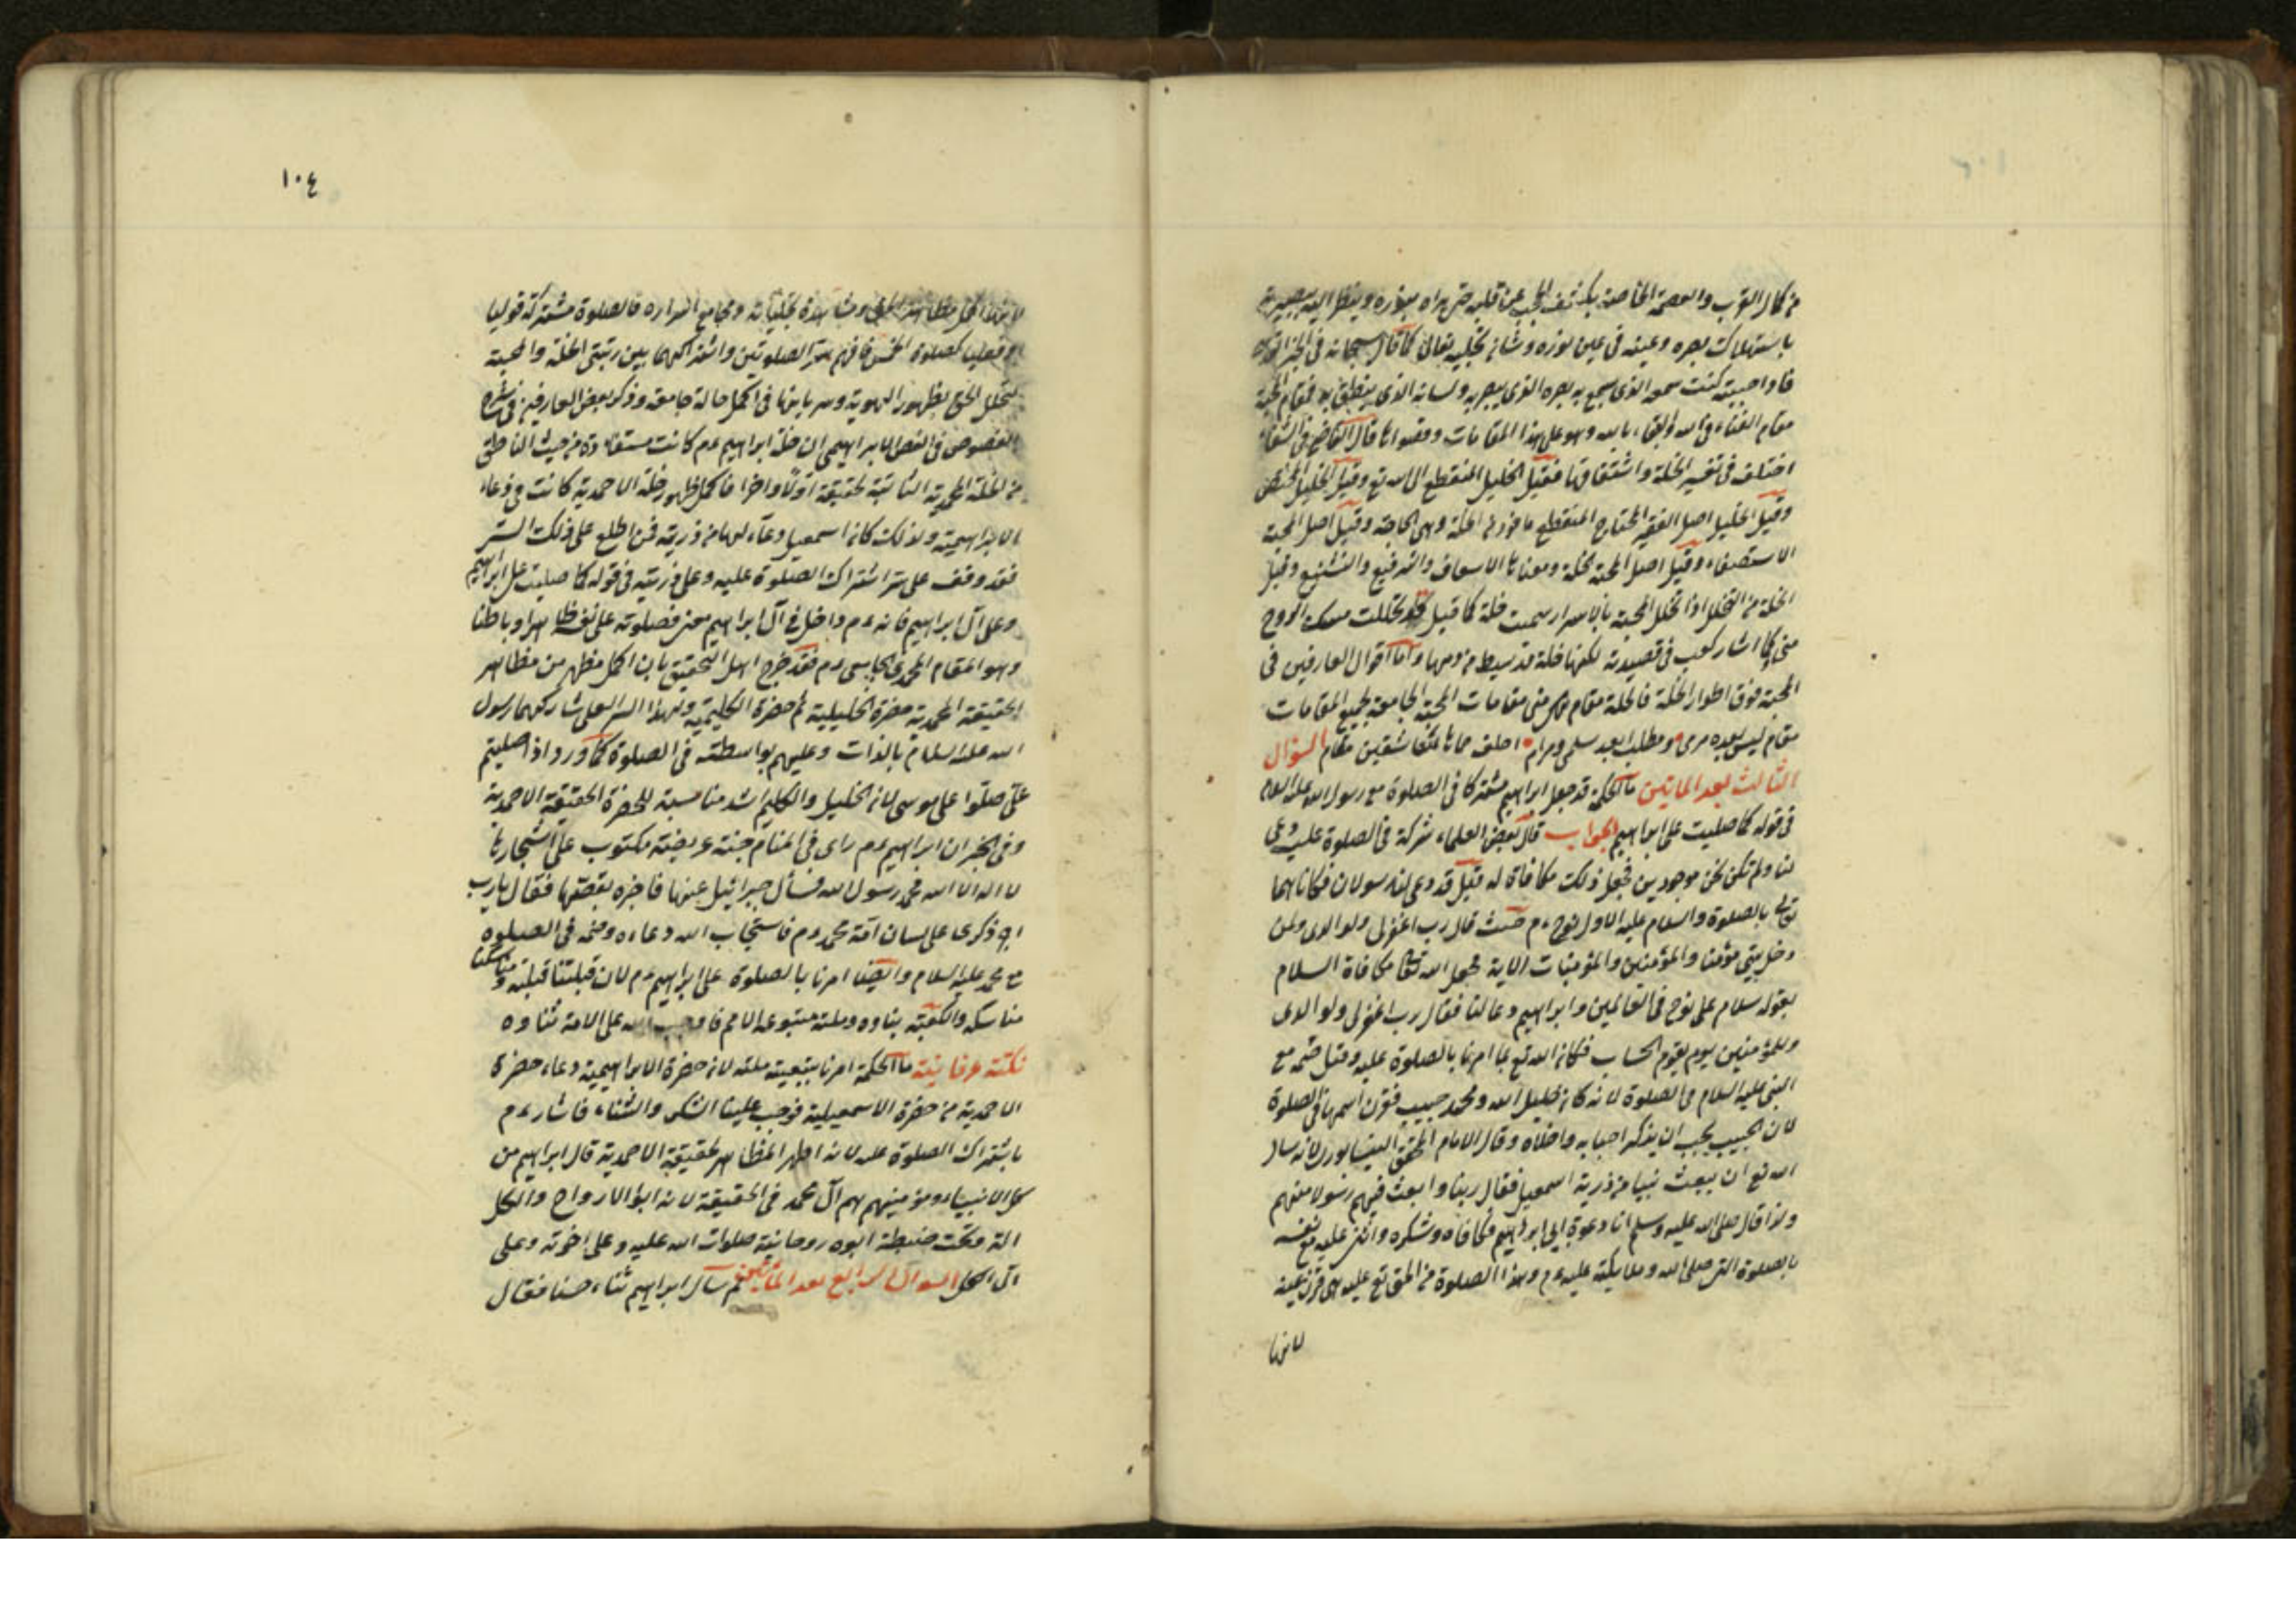 من كمال القرب والعصمة الخاصة بكشف الحجب عن قلبه حتى يراه بنوره وينظر اليه ببصيرته
باستهلاك بصره وعينه في عين نوره وشانه تجليه تعالى كما قال سبحانه في الخبر
فاذا احببته كنت سمعه الذي يسمع به وبصره الذي يبصر به ولسانه الذي ينطق به فمقام المحبة
مقام الفناء في الله والبقاء بالله وهو على هذا المقامات وقصواها قال القاضي في الشفاء
اختلف في تفسير الخلة واشتقاقها فقيل الخليل المنقطع الى الله تع وقيل الخليل المختص
وقيل الخليل اصل الفقير المحتاج المنقطع ماخوذ من الخلة وهي الحاجة وقيل اصل المحبة
الاستصفاء وقيل اصل المحبة خلة ومعناها الاسعاف والترفيع والتشفيع وقيل
الخلة من التخلل اذا تخلل المحبة بالاسرار سميت خلة كما قيل قد تخللت مسلك الروح
مني كما اشار كعب في قصيدته لكنها خلة قد سيط من دمها واما اقوال العارفين في
المحبة فوق اطوار الخلة فالخلة مقام من مقامات المحبة الجامعة لجميع المقامات
مقام ليس بعده مرمى ومطلب بعد سلمى ومرام مقام السؤال
الثالث بعد المايتين ما الحكمة قد جعل ابراهيم مشتركا في الصلوة مع رسول الله عليه السلام
في قوله كما صليت على ابراهيم الجواب قال بعض العلماء شركة في الصلوة عليه دعى
لنا ولم نكن نحن موجودين فجعل ذلك مكافاة له قيل قد دعى لنا رسولان فكافاهما
تع بالصلوة والسلام عليه الاول نوح عم حيث قال رب اغفر لي ولوالدي ولمن
دخل بيتي مؤمنا والمؤمنين والمؤمنات الاية فجعل الله تعالى مكافاة السلام
بقوله سلام على نوح في العالمين وابراهيم دعا لنا فقال رب اغفر لي ولوالدي
وللمؤمنين يوم يقوم الحساب فكافاه الله تع بما امرنا بالصلوة عليه وقيل ضمه مع
النبي عليه السلام في الصلوة لانه كان خليل الله ومحمد حبيب فقرن اسمها في الصلوة
لان الحبيب يجب ان يذكر احبابه واخلاه وقال الامام المحقق النيسابوري لانه سال
الله تع ان يبعث نبيا من ذرية اسمعيل فقال ربنا وابعث فيهم رسولا منهم
ولذا قال صلى الله عليه وسلم انا دعوة ابي ابراهيم فكافاه وشكره واثنى عليه مع نفسه
بالصلوة التي صلى الله وملائكته عليه عم وهذا الصلوة من الحق تع عليه هي قرة عينه
لانها
١٠٤
لانها اكمل مظاهر الحق ومشاهدة تجلياته ومجامع اسراره فالصلوة مشتركة قوليا
وفعليا كصلوة الخمس فافهم سر الصلوتين واشتراكهما بين رتبتي الخلة والمحبة
لتخلل الحق بظهور الهوية وسريانها في اكمل حالة جامعة وذكر بعض العارفين في شرح
الفصوص في الفص الابراهيمي ان خلة ابراهيم عم كانت مستفادة من حيث الناطق
من الخلة المحمدية الثابتة لحقيقة اولا واخرا فاكمل ظهور خلة الاحمدية كانت في دعاء
الابراهيمية ولذلك كان اسمعيل دعاء لهما من ذريته فمن اطلع على ذلك السر
فقد وقف على سر اشتراك الصلوة عليه وعلى ذريته في قوله كما صليت على ابراهيم
وعلى آل ابراهيم فانه عم داخل في آل ابراهيم معنى فصلوته على نفسه ظاهرا وباطنا
وهو المقام المحمدي عم فقد خرج اهل التحقيق بان اكمل مظهر من مظاهر
الحقيقة المحمدية حضرة الخليلية ثم حضرة الكليمية ولهذا السر العلى شاركهما رسول
الله عليه السلام بالذات وعليهم بواسطته في الصلوة كما ورد اذا صليتم
علي صلوا على موسى لان الخليل والكليم اشد مناسبة للحضرة الحقيقة الاحمدية
وفي الخبر ان ابراهيم عم راى في المنام جنة عريضة مكتوب على اشجارها
لا اله الا الله محمد رسول الله فسأل جبرائيل عنها فاخبره بقصتها فقال يارب
اجر ذكري على لسان امة محمد عم فاستجاب الله دعاءه وضمه في الصلوة
مع محمد عليه السلام وايضا امرنا بالصلوة على ابراهيم عم لان قبلتنا قبلته ومناسكنا
مناسكه والكعبة بناوه وملته متبوعة الامم فاوجب الله على الامة ثناوه
نكتة عرفانية ما الحكمة امرنا بتبعية ملته لانه حضرة الابراهيمية دعاء حضرة
الاحمدية من حضرة الاسمعيلية فوجب علينا الشكر والثناء فاشار عم
باشتراك الصلوة عليه لانه اظهر المظاهر لحقيقة الاحمدية قال ابراهيم من
كل الانبياء ومؤمنيهم هم آل محمد في الحقيقة لانه ابو الارواح والكل
امته وتحت ضبطة ابوه روحانية صلوات الله عليه وعلى اخوته وعلى
آل الكل السؤال الرابع بعد المايتين لم سال ابراهيم ثناء حسنا فقال